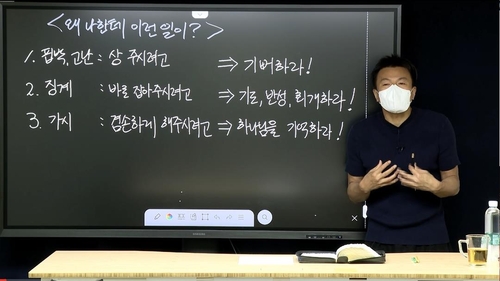 <왜 나한테 이런 일이?>
1. 핍박, 고난 : 상 주시려고 ⇒ 기뻐하라!
2. 징계 : 바로 잡아주시려고 ⇒ 기도, 반성, 회개하라!
3. 가시 : 겸손하게 해주시려고 ⇒ 하나님을 기억하라!